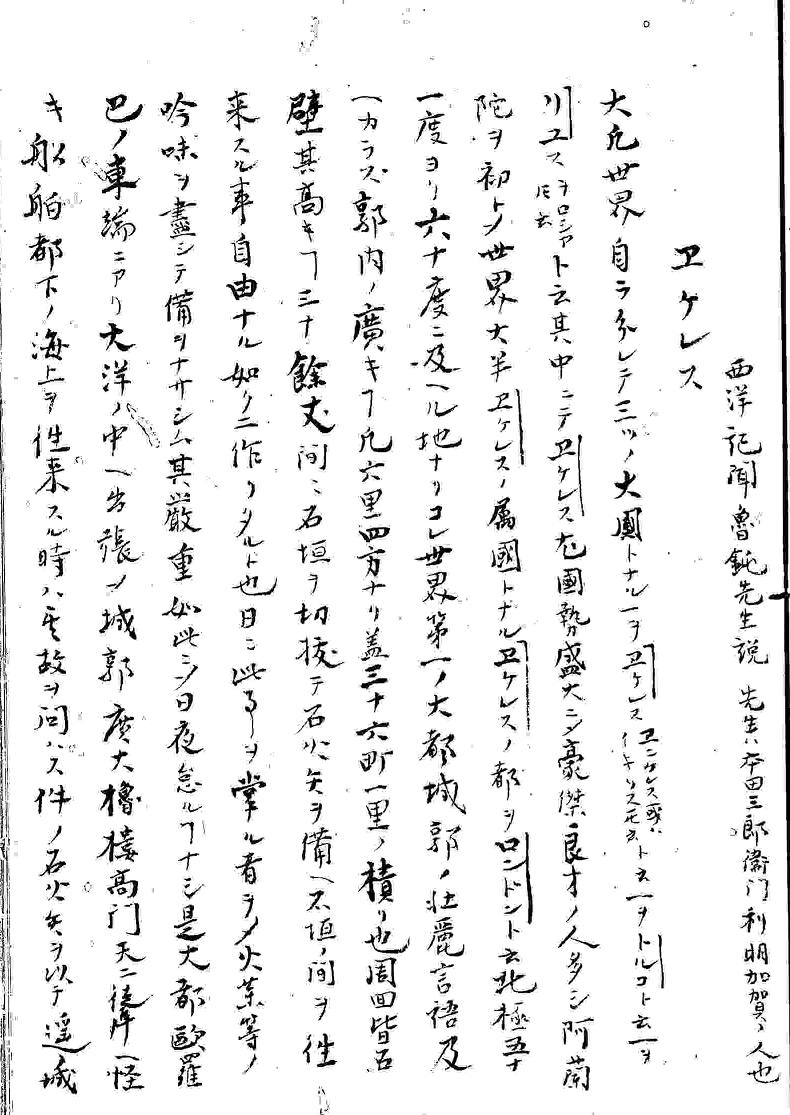 西洋記聞魯鈍先生説 先生ハ本田三郎衛門利明加賀ノ人也
ヱケレス
大凢世界自ラ分レテ三ツノ大圓トナル一ヲヱケレス ヱンケレス或ハイキリスモ云 ト云一ヲトルコト云一ヲ
リユスヲロシアト云其中ニテヱケレス尤國勢盛大ニメ豪傑良才ノ人多シ阿蘭
陀ヲ初トメ世界大半ヱケレスノ属國トナルヱケレスノ都ヲロンドント云北極五十
一度ヨリ六十度ニ及ヘル地ナリコレ世界第一ノ大都城郭ノ壮麗言語及
ヘカラズ郭内ノ廣キヿ凢六里四方ナリ蓋三十六町一里ノ積リ也周回皆石
壁其高キヿ三十餘丈間ニ石垣ヲ切抜テ石火矢ヲ備ヘ石垣ノ間ヲ往
来スル事自由ナル如クニ作リタルト也日ニ此事ヲ掌ル者ヲメ火業等ノ
吟味ヲ盡シテ備ヲナサシム其厳重如此ニメ日夜怠ルヿナシ是大都歐羅
巴ノ東端ニアリ大洋ノ中ヘ出張メ城郭廣大櫓楼高門天ニ聳怪
キ船舶都下ノ海上ヲ往来スル時ハ其故ヲ問ハス件ノ石火矢ヲ以テ遥城